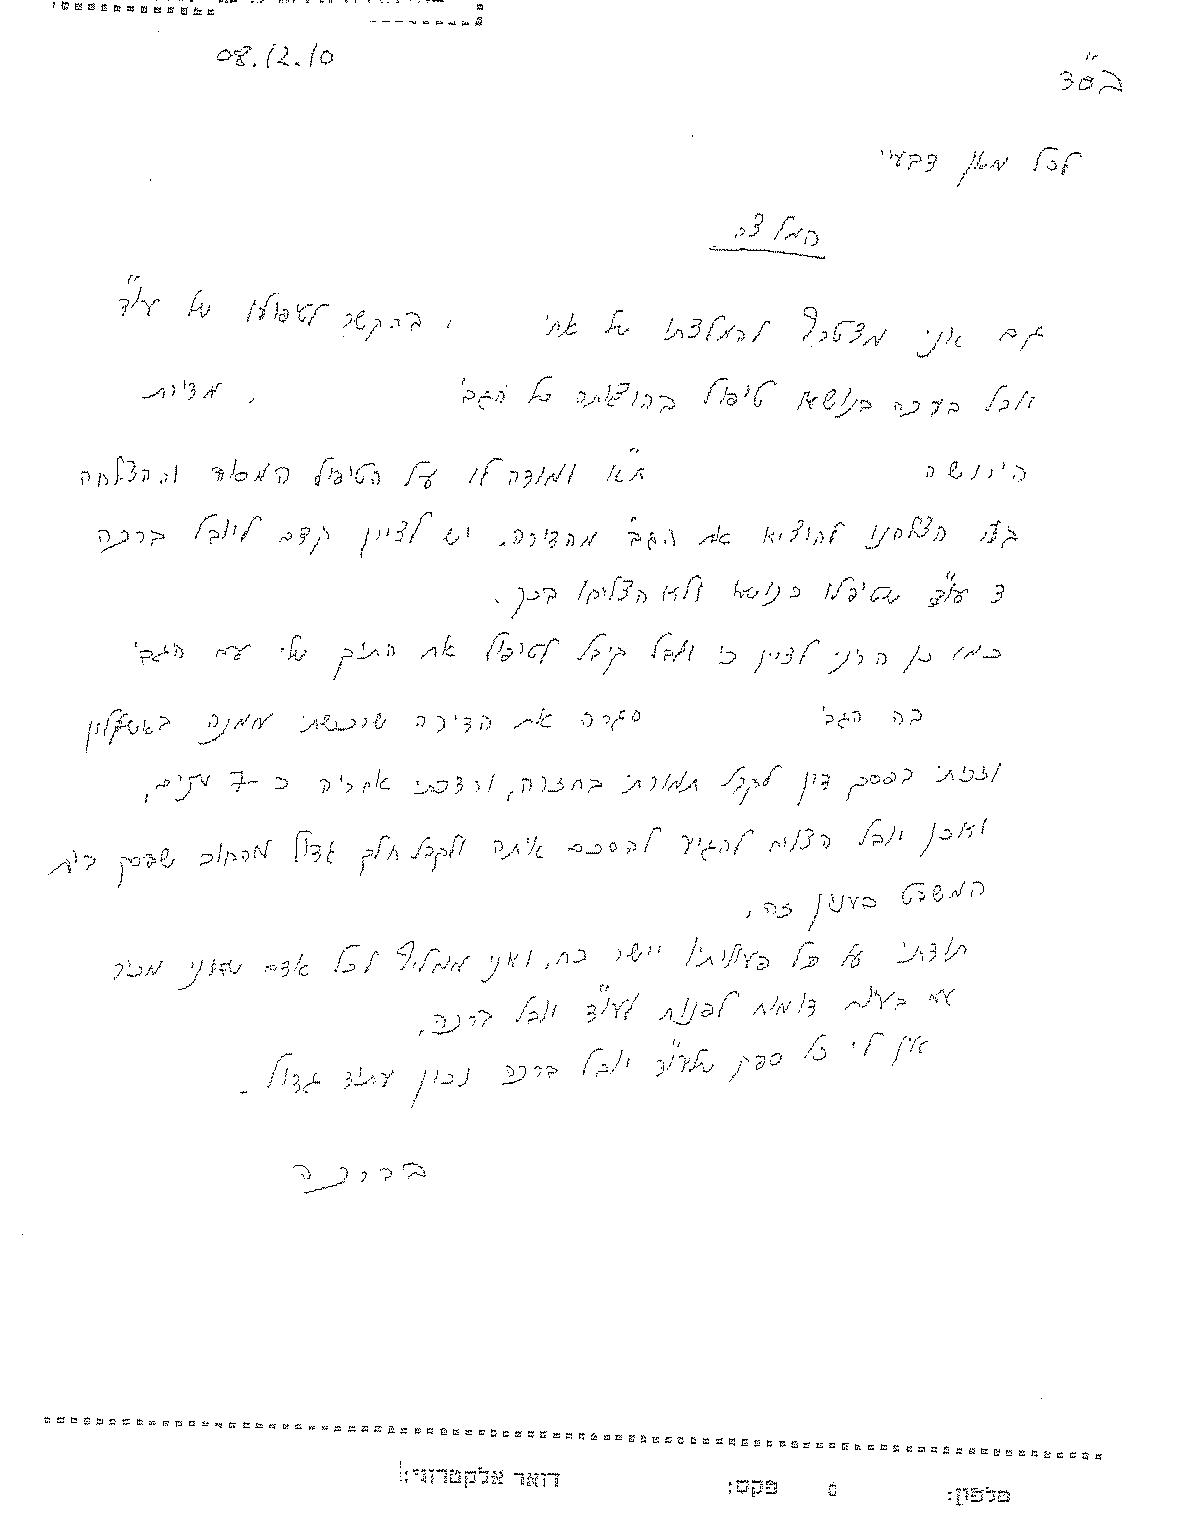 08.12.10
בס"ד
לכל מאן דבעי
המלצה
גם אני מצטרף להמלצתו של אחי , בהקשר לטיפולו של עו"ד
יובל ברכה בנושא טיפול בהוצאתה של הגב' . מדירת
הירושה ת"א ומודה לו על הטיפול המסור וההצלחה
הצלחנו להוציא את הגב' מהדירה. יש לציין קדם ליובל ברכה
3 עו"ד שטיפלו בנושא ולא הצליחו בכך.
כמו כן הריני לציין כי יובל קיבל לטיפול את התיק שלי עם הגב'
בה הגב' מכרה את הדירה שרכשתי ממנה באשקלון
וזכיתי בפסק דין לקבל תמורתי בחזרה, ורדפתי אחריה כ-7 שנים,
ואכן יובל הצליח להגיע להסכם איתה ולקבל חלק גדול מהחוב שפסק בית
המשפט בעניין זה.
תודתי על כל פעולותיו יישר כח, ואני ממליץ לכל אדם שאני מכיר
עם בעיות דומות לפנות לעו"ד יובל ברכה.
אין לי כל ספק שלעו"ד יובל ברכה נכון עתיד גדול.
בברכה
טלפון: 0 פקס: דואר אלקטרוני: